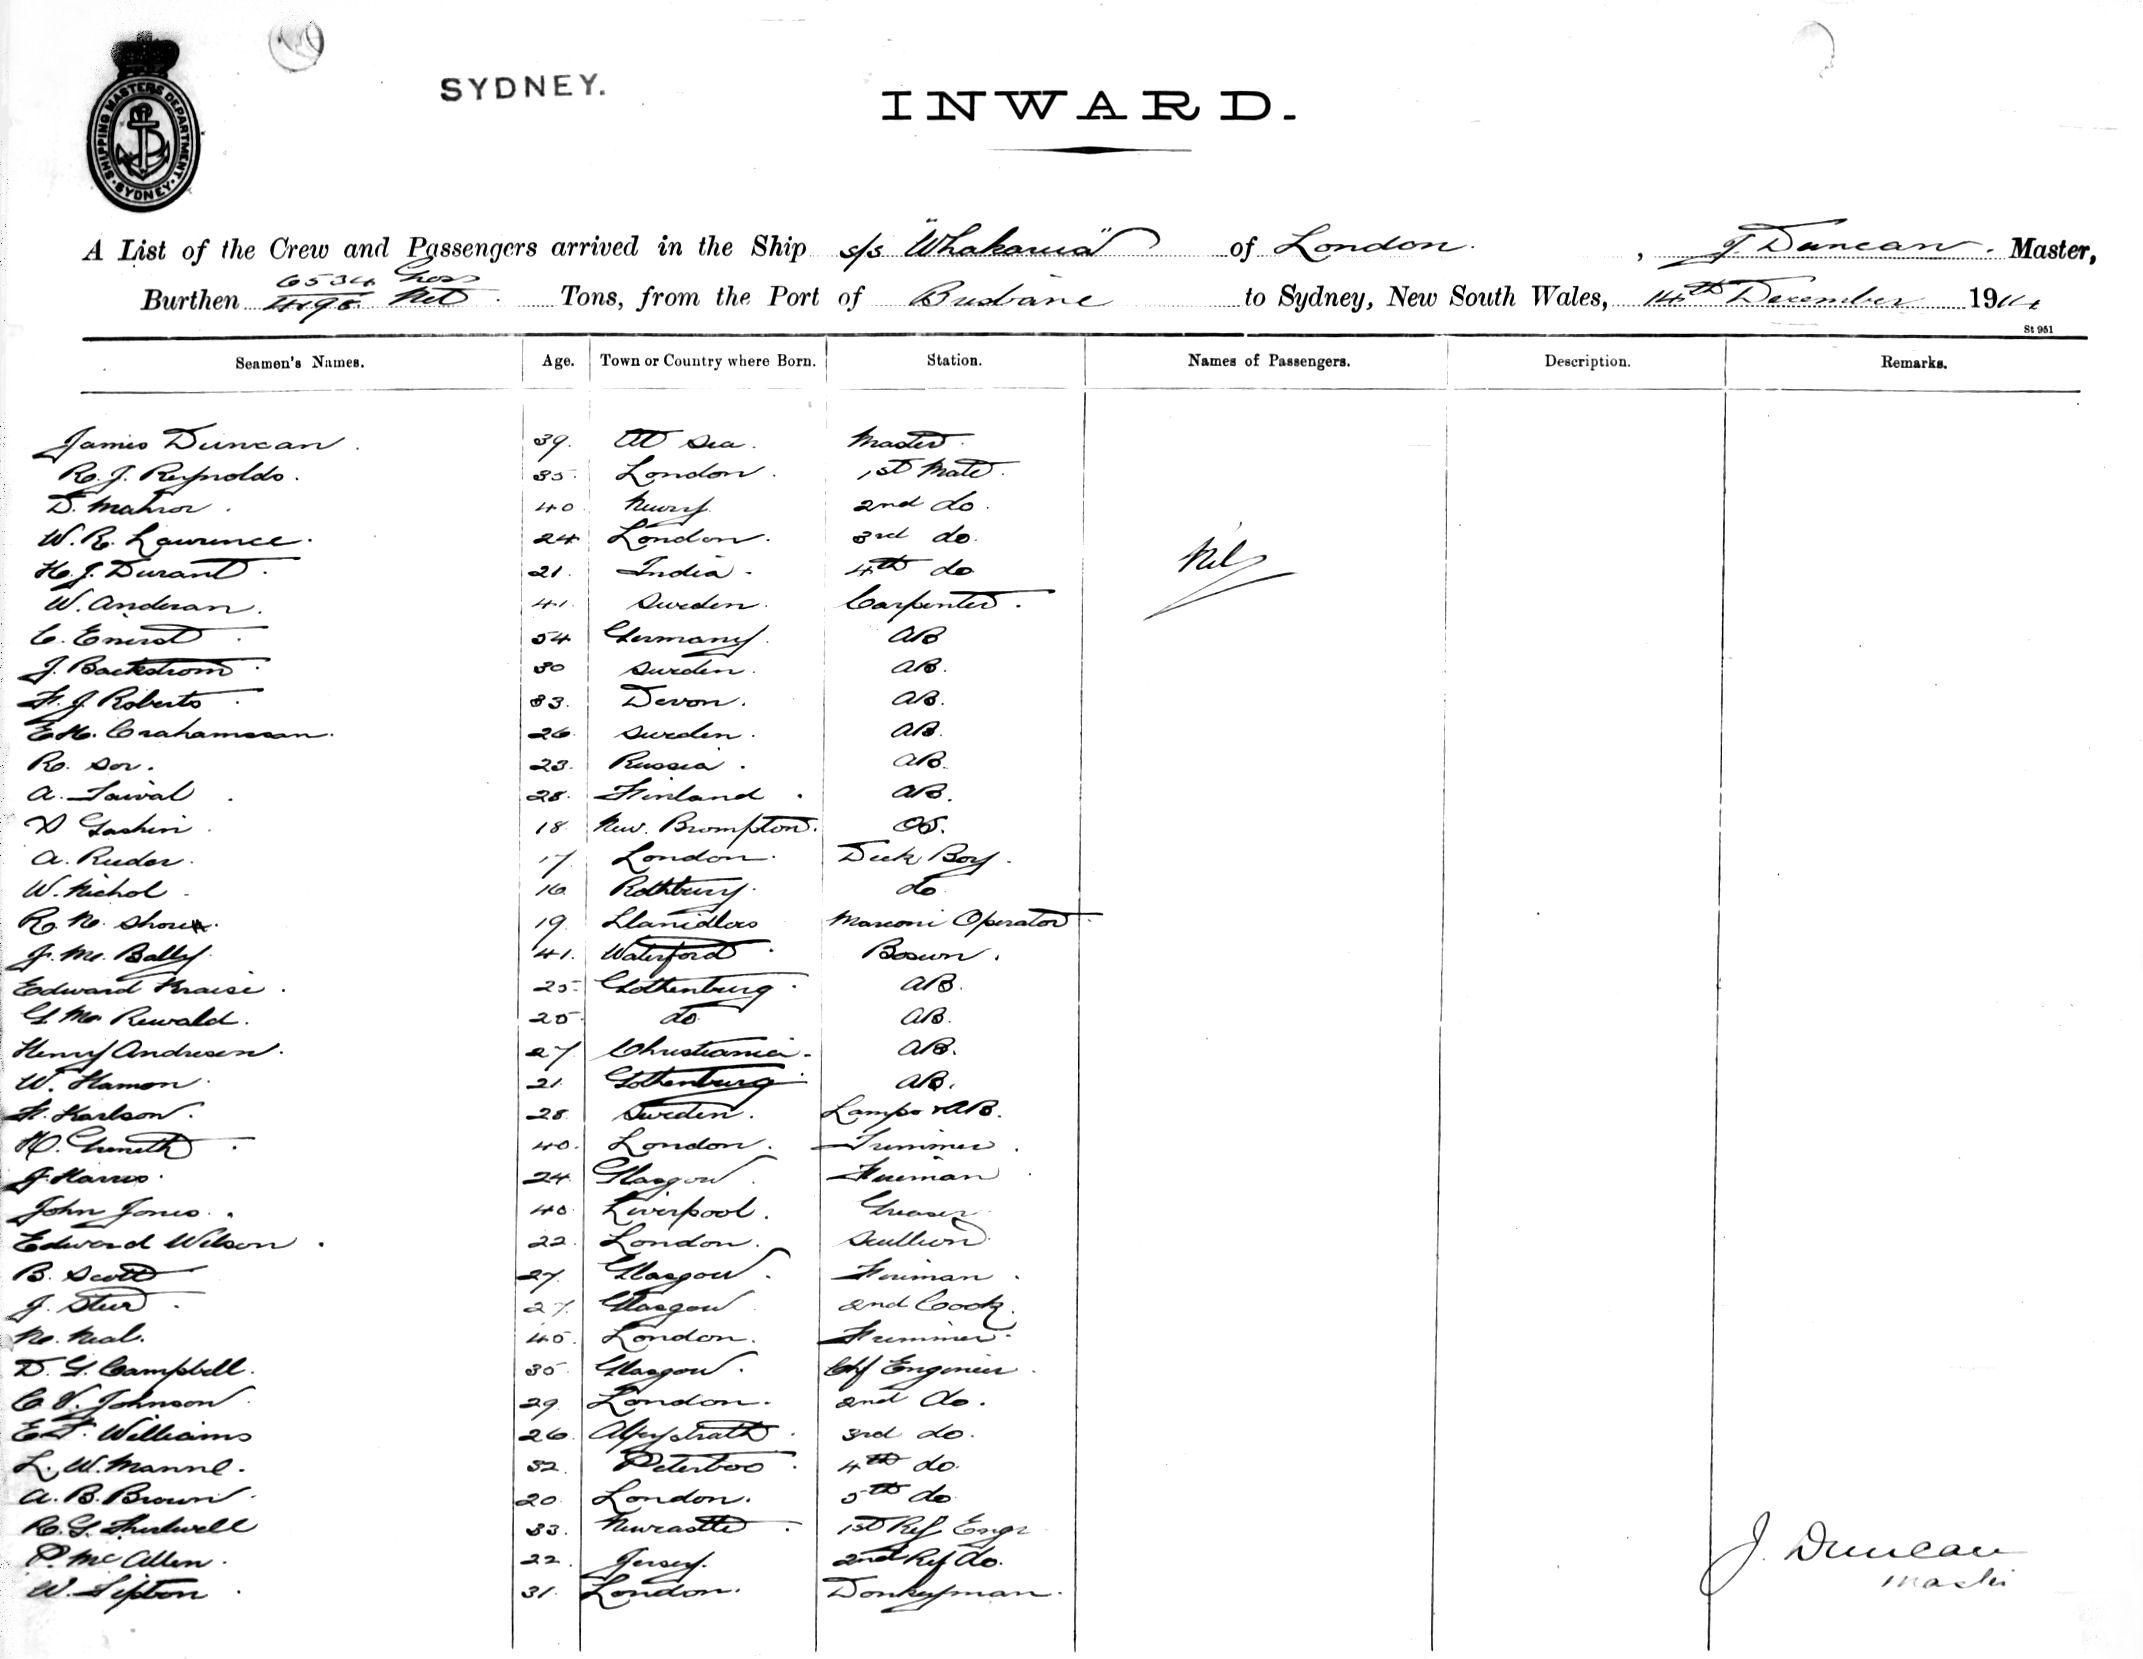 SHIPPING MASTERS DEPARTMENT · SYDNEY ·
SYDNEY.
INWARD.
A List of the Crew and Passengers arrived in the Ship s/s "Whakarua" of London. , J. Duncan. Master,
6534 Gross
Burthen 4198 Net. Tons, from the Port of Brisbane to Sydney, New South Wales, 14th December 1914
St 951
Seamen's Names. Age. Town or Country where Born. Station. Names of Passengers. Description. Remarks.
James Duncan. 39. At sea. Master.
R. J. Reynolds. 35. London. 1st Mate.
D. 40 Newry. 2nd do.
W. R. Lawrence. 24 London. 3rd do.
H. J. Durant. 21. India. 4th do
Nil
W. Anderan. 41. Sweden. Carpenter.
C. Enerst. 54 Germany. AB
J. Backstrom. 30 Sweden. AB.
F. J. Roberts. 33. Devon. AB.
E. H. Grahamsson. 26. Sweden. AB.
R. Sor. 23. Russia. AB.
A. Taival. 28. Finland. AB.
Gashin. 18. New. Brompton. OS.
A. Ruder. 17. London. Deck Boy.
W. Nichol. 16. Rothbury. do
R. N. 19. Llanidloes Marconi Operator.
J. Mc. Bally. 41. Waterford. Bosun.
Edward Kraise. 25. Gothenburg. AB.
G. Rewald. 25. do AB.
Henry Andresen. 27 Christiania. AB.
W. Hamon. 21. Gothenburg. AB.
F. Karlson. 28. Sweden. Lamps & AB.
H. 40. London. Trimmer.
J. Harris. 24. Glasgow. Fireman.
John Jones. 40. Liverpool. Greaser.
Edward Wilson. 22. London. Scullion.
B. Scott 27. Glasgow. Fireman.
J. Stur. 27. Glasgow 2nd Cook.
N. Neal. 45. London. Trimmer.
D. G. Campbell. 35. Glasgow. Chf Engineer.
C. V. Johnson. 29. London. 2nd do.
E. T. Williams 26. 3rd do.
L. W. Mannl. 32. Peterboro. 4th do.
A. B. Brown. 20. London. 5th do
R. G. Thirlwell 33. Newcastle. 1st Ref Engr
P. McAllen. 22. Jersey. 2nd Ref do.
W. Sipton. 31. London. Donkeyman.
J. Duncan
Master